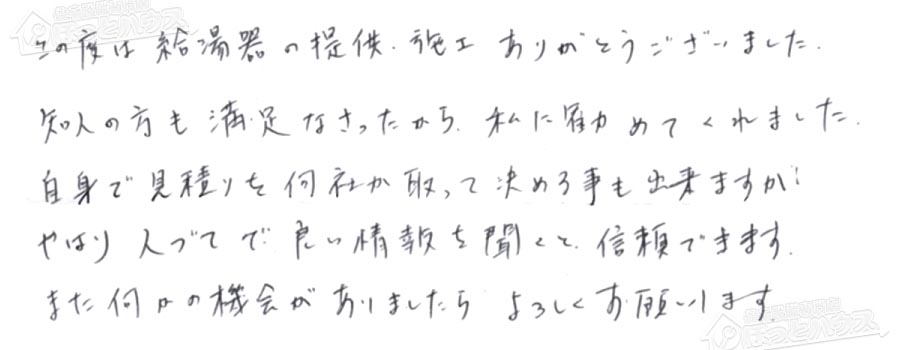 この度は給湯器の提供.施工ありがとうございました.
知人の方も満足なさったから.私に勧めてくれました.
自身で見積りを何社か取って決める事も出来ますが
やはり人づてで良い情報を聞くと信頼できます.
また何かの機会がありましたらよろしくお願いします.
ほっとハウス
ほっとハウス